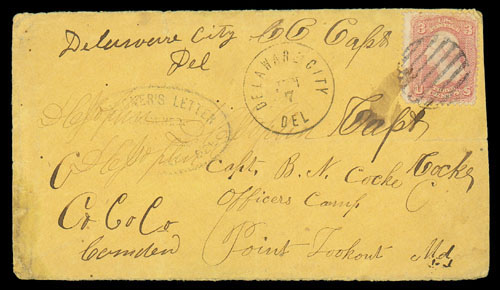 Delaware City CC Capt
Del
3 3
U S
DELAWARE CITY
7
DEL
NER'S LETTER
Capt
Capt. B. N. Cocke Cocke
Officers Camp
Co Co Co
Camden
Point Lookout Md